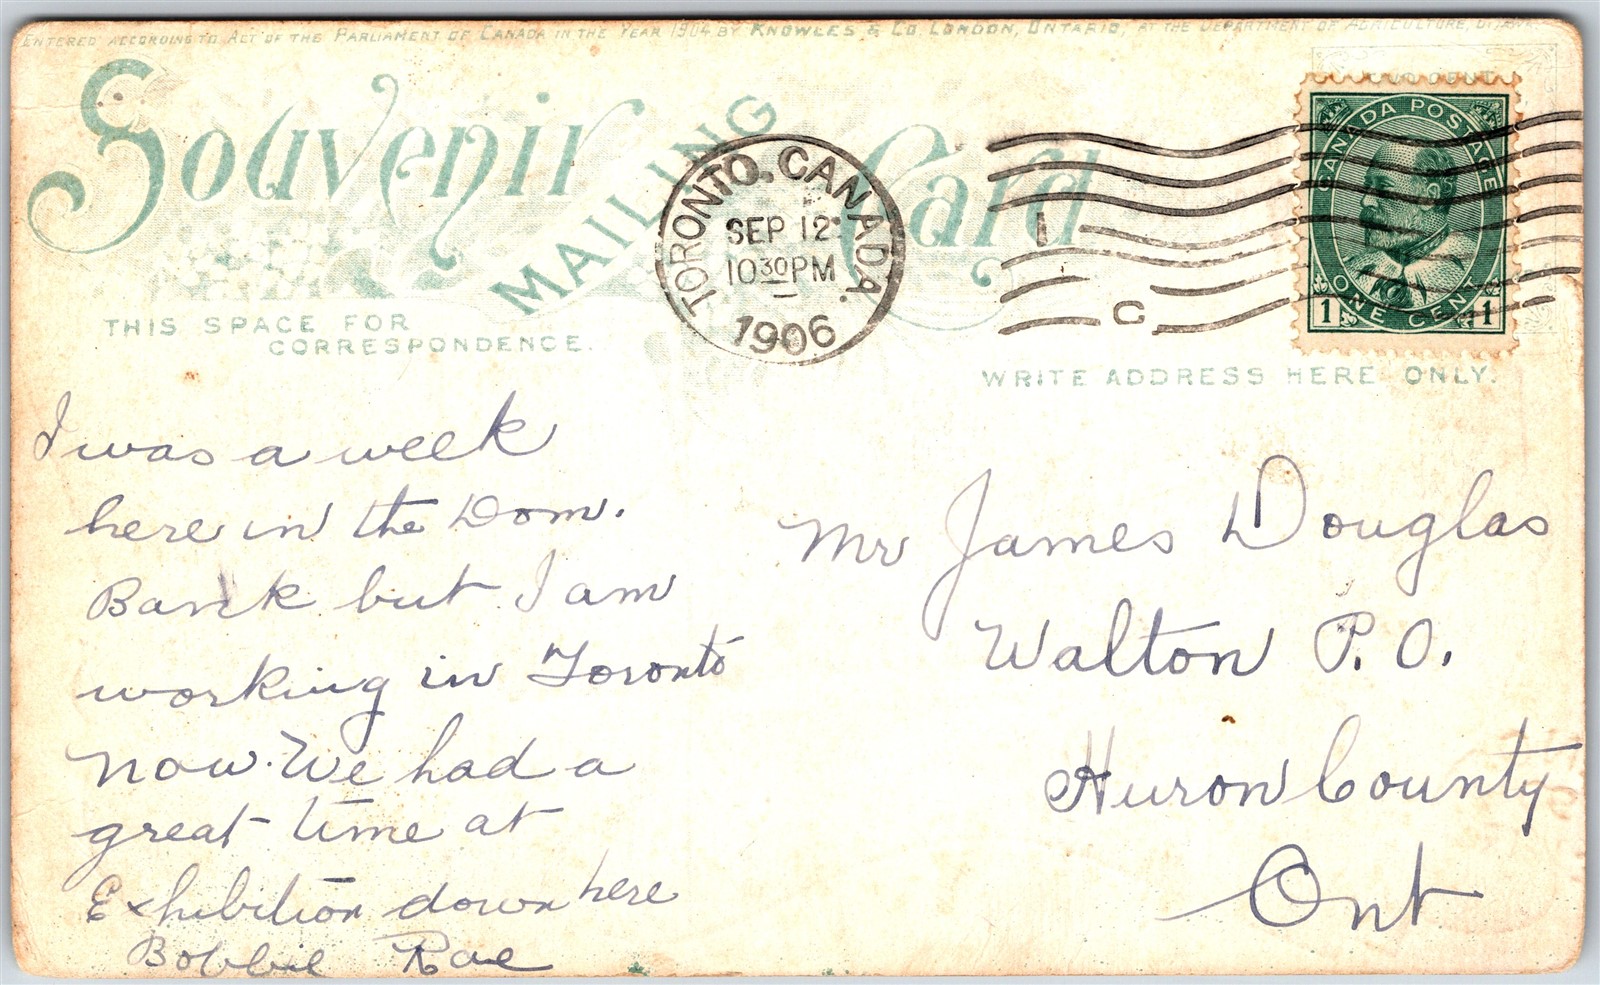 ENTERED ACCORDING TO ACT OF THE PARLIAMENT OF CANADA IN THE YEAR 1904 BY KNOWLES & CO. LONDON, ONTARIO, AT THE DEPARTMENT OF AGRICULTURE,
Souvenir
MAILING
Card
THIS SPACE FOR
CORRESPONDENCE.
TORONTO. CANADA.
SEP 12
10 30 PM
1906
1
C
CANADA POSTAGE
ONE CENT
1 1
WRITE ADDRESS HERE ONLY.
I was a week
here in the Dom.
Bank but I am
working in Toronto
now. We had a
great time at
Exhibition down here
Bobbie Rae
Mr James Douglas
Walton P.O.
Huron County
Ont